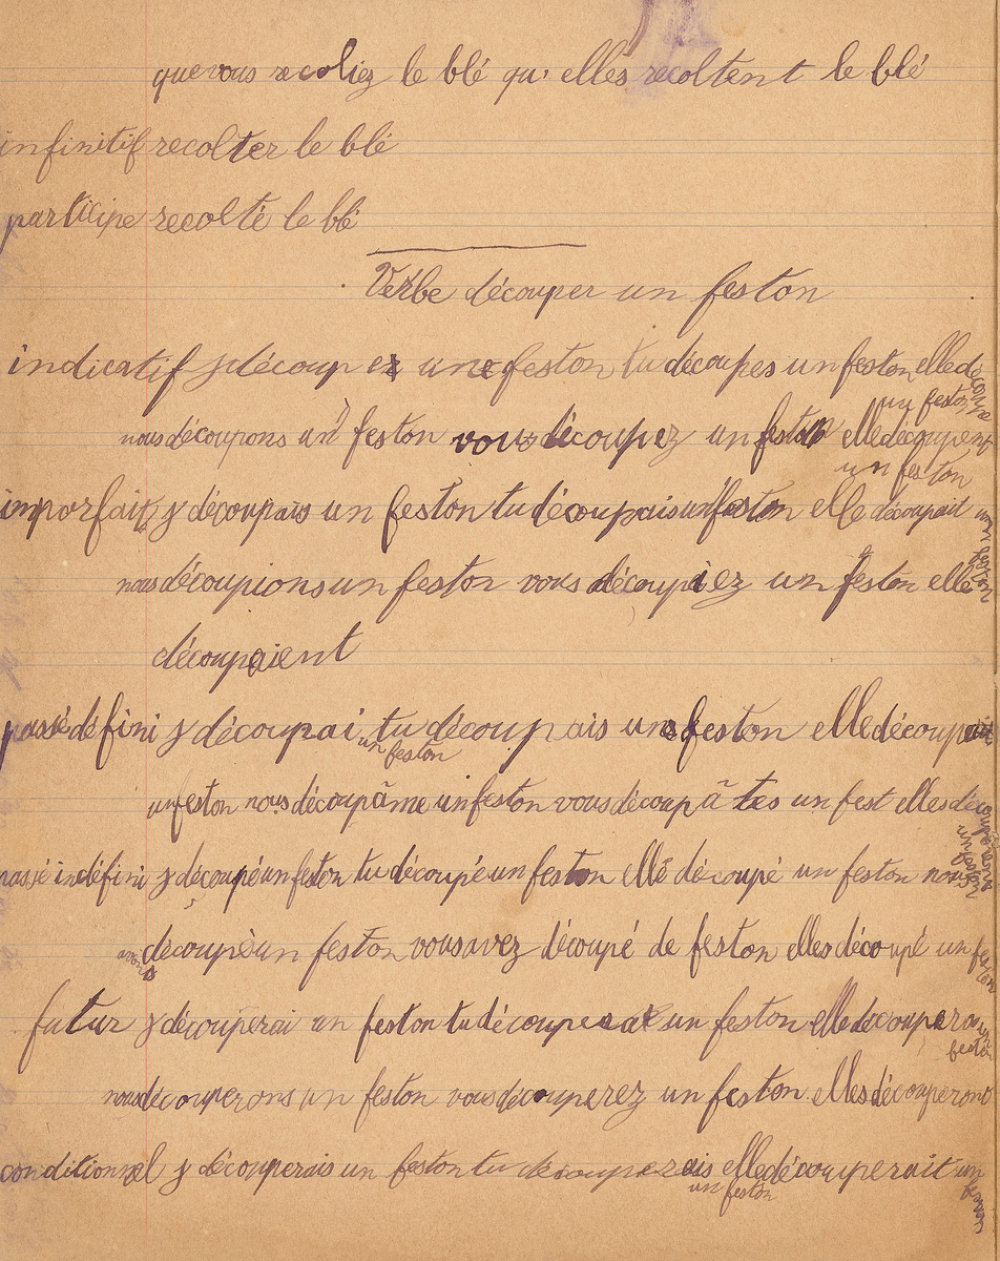 que vous recoliez le blé qu'elles recoltent le blé
infinitif recolter le blé
participe recolté le blé
Verbe découper un feston
indicatif j découpe un feston tu découpes un feston elle découpe
un feston
nous découpons un feston vous découpez un feston elle découpent
un feston
imporfait j découpais un feston tu découpais un feston elle découpait un feston
nous découpions un feston vous découpiez un feston elle
découpaient
passé défini j découpai tu découpais un feston elle découpait
un feston
un feston nous découpâme un feston vous découpâtes un fest elles découpèrent
un feston
passé indéfini j découpé un feston tu découpé un feston elle découpé un feston nous
avons découpé un feston vous avez découpé de feston elles découpé un feston
futur j découperai un feston tu découperas un feston elle découpera un
feston
nous découperons un feston vous découperez un feston elles découperont
conditionnel j découperais un feston tu découperais elle découperait un feston
un feston